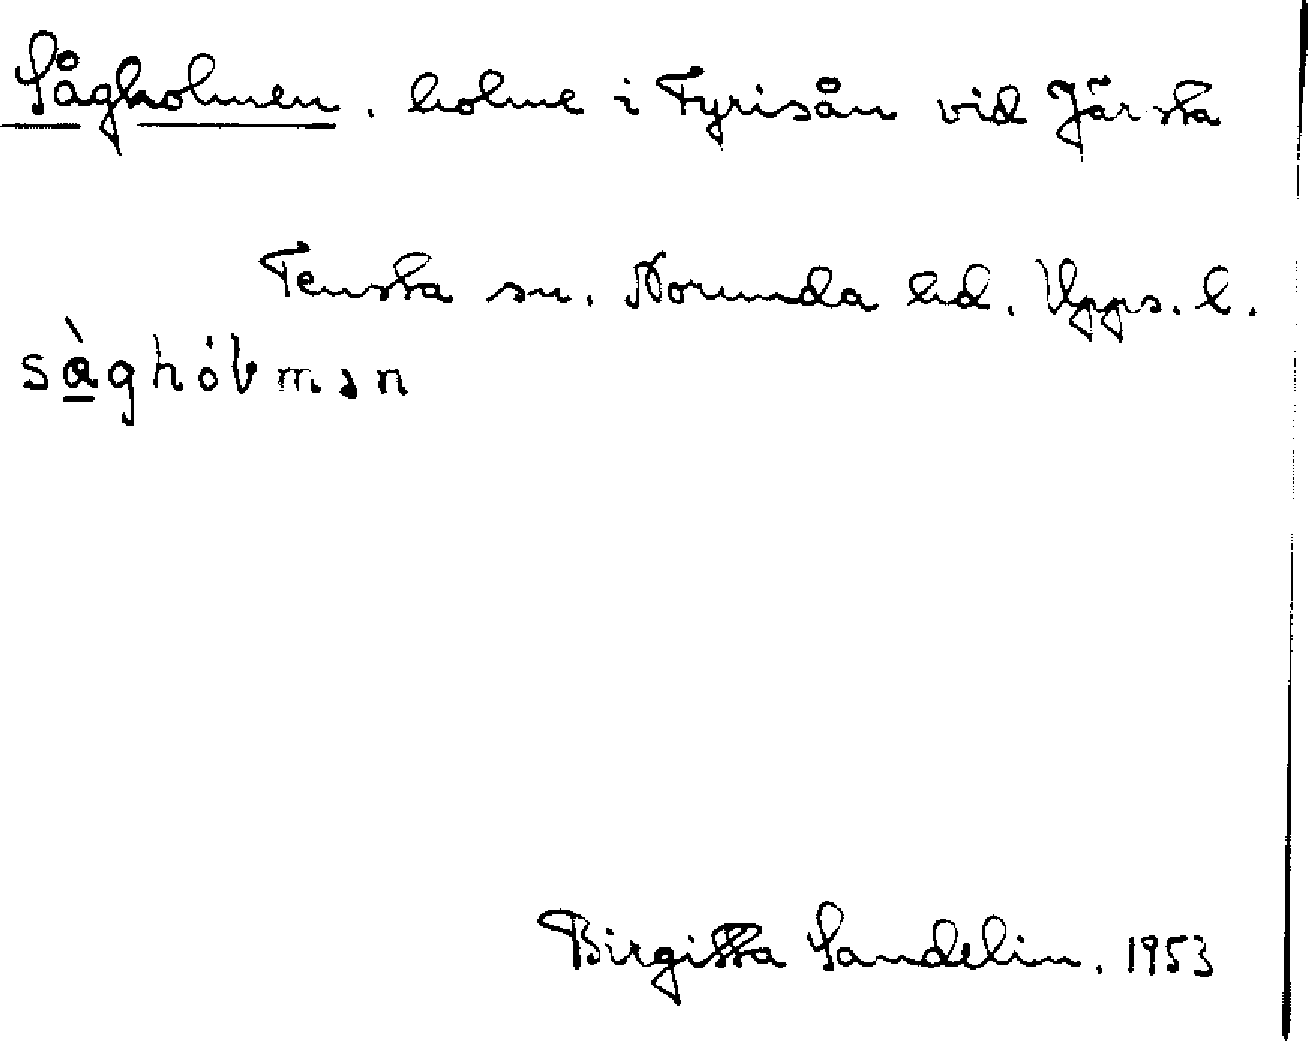 Sågholmen. holme i Fyrisån vid Järsta
Tensta sn. Norunda hd. Upps. l.
sàghólmən
Birgitta Sandelin. 1953